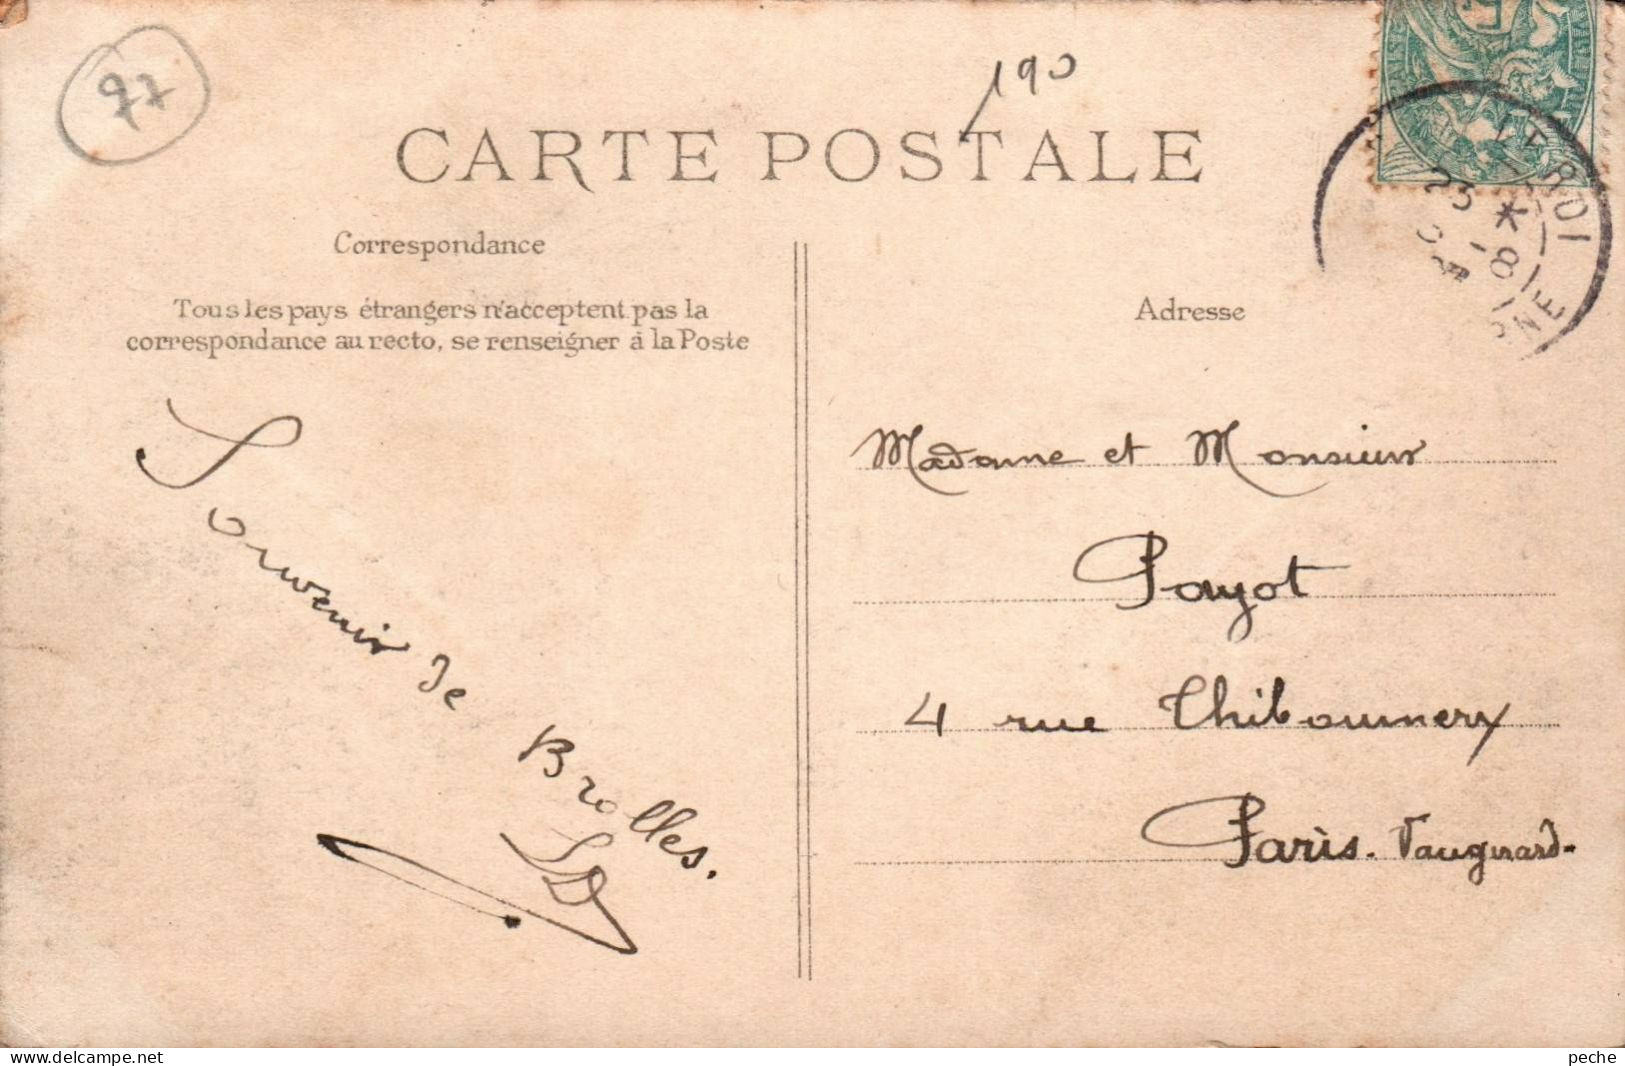 77
190
CARTE POSTALE
Correspondance
Tous les pays étrangers n'acceptent pas la
correspondance au recto, se renseigner à la Poste
Adresse
Souvenir de Brolles.
Madame et Monsieur
Payot
4 rue Thiboumery
Paris. Vaugirard.
website: www.delcampe.net
peche